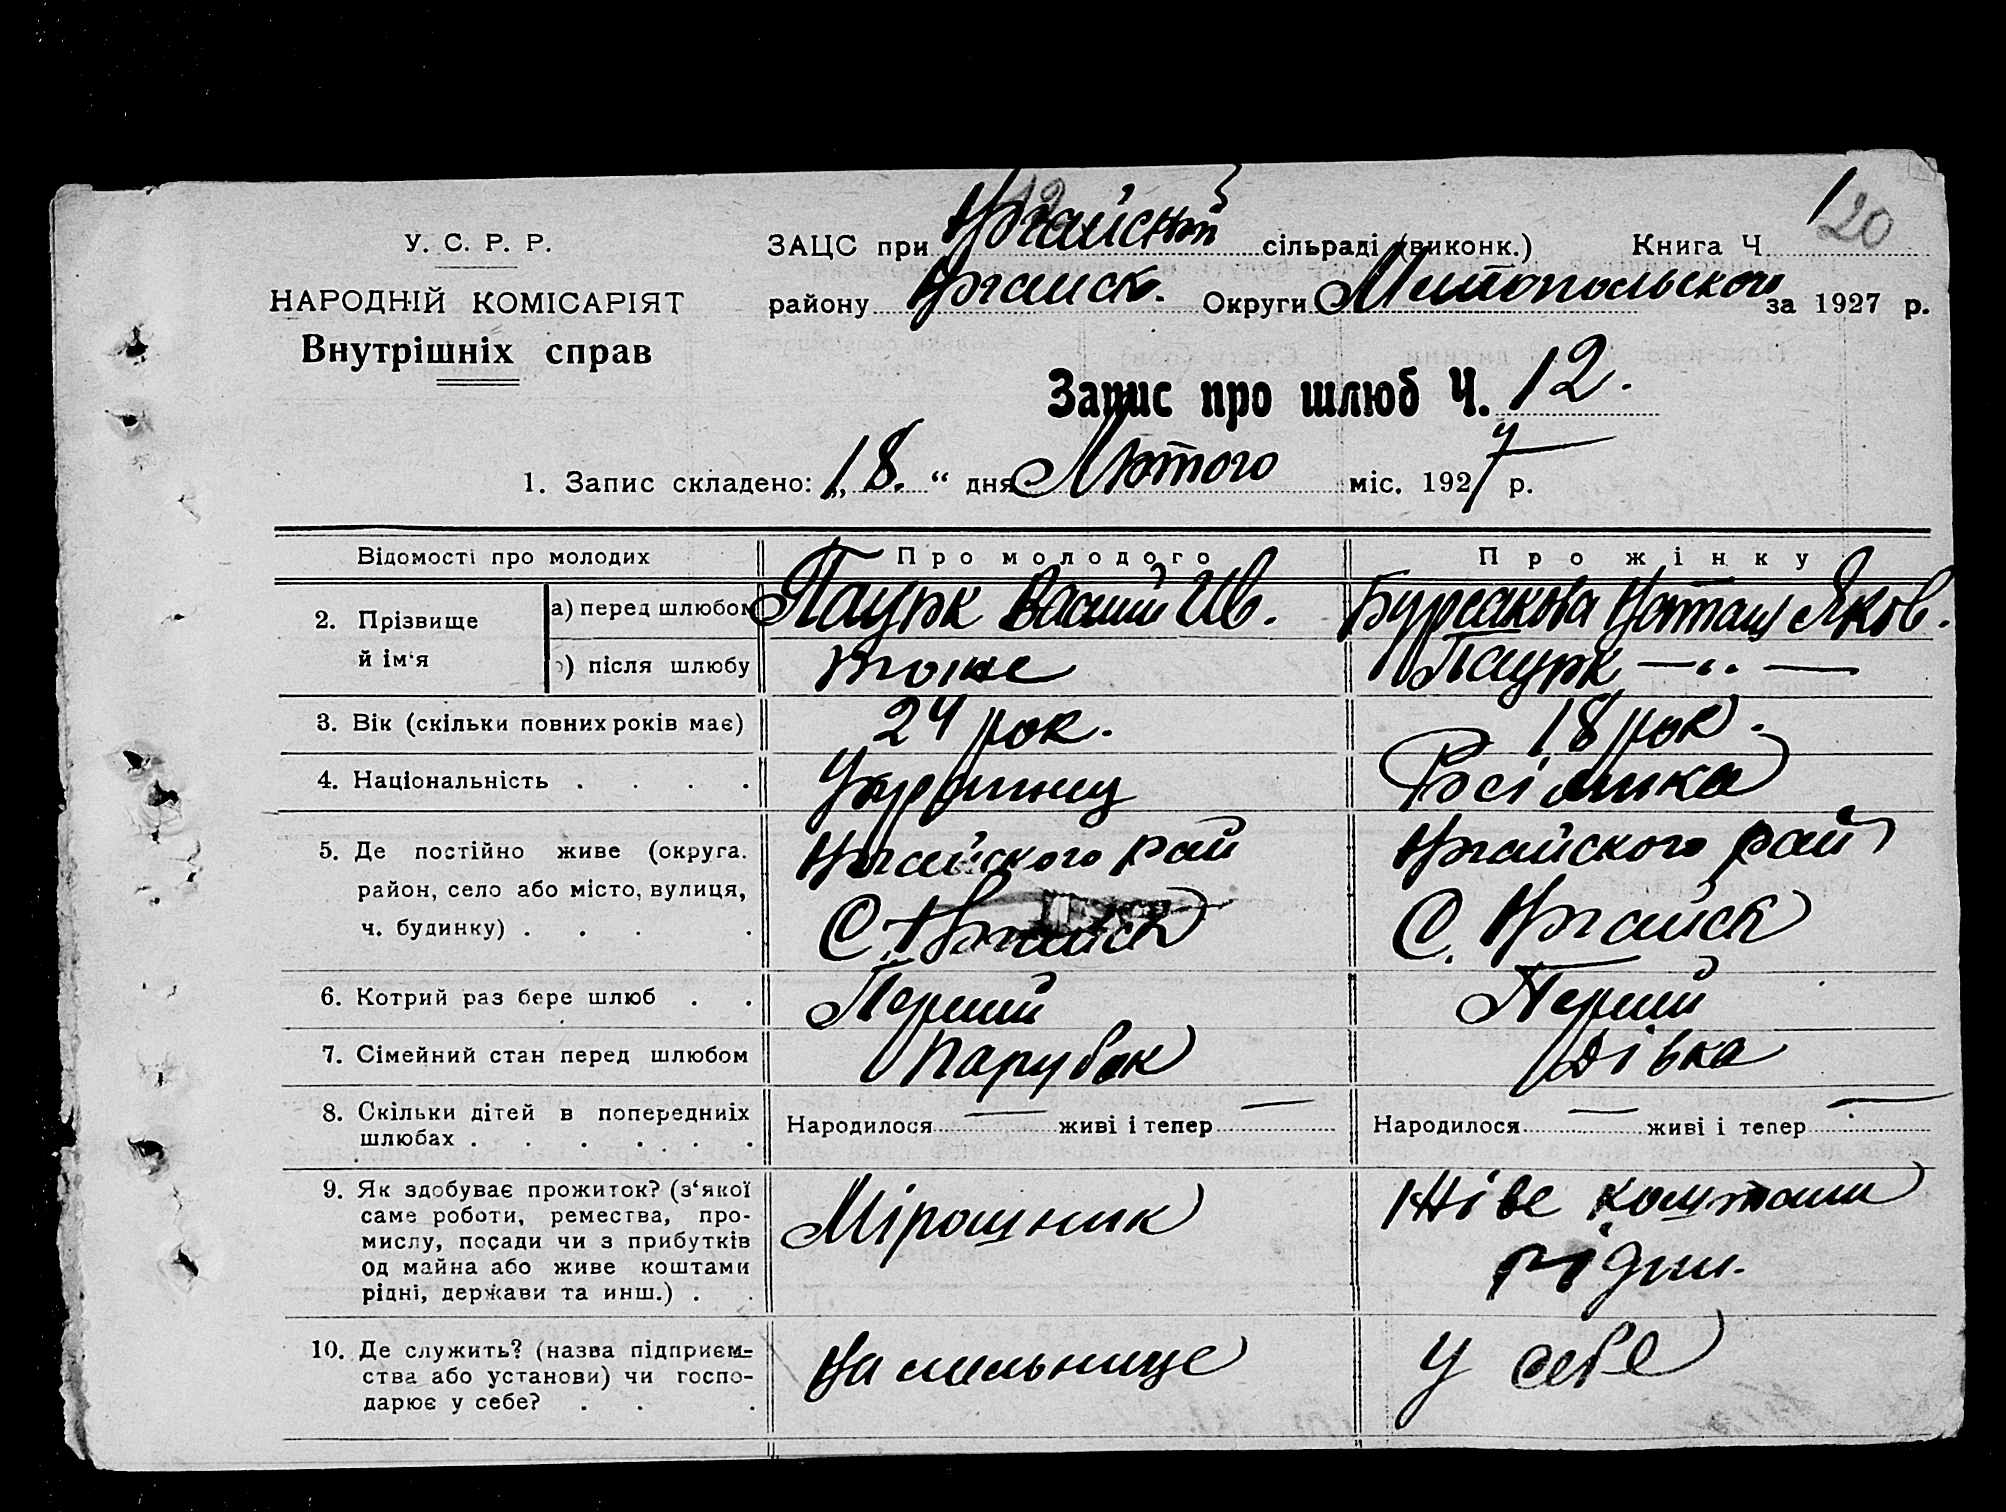 120
У. С. Р. Р.
НАРОДНІЙ КОМІСАРІЯТ
Внутрішніх справ
ЗАЦС при Ногайській сільраді (виконк.) Книга Ч
району Ногайськ. Округи Мелітопольскої за 1927 р.
Запис про шлюб Ч. 12.
1. Запис складено: „18.“ дня Лютого міс. 1927 р.
Відомості про молодих Про молодого Про жінку
2. Прізвище й ім'я
а) перед шлюбом Василий Ив. Яков.
б) після шлюбу тоже — „ —
3. Вік (скільки повних років має) 24 рок. 18 рок.
4. Національність . . . . Українец Росіянка
5. Де постійно живе (округа. Ногайського рай Ногайського рай
район, село або місто, вулиця,
ч. будинку) . . . . С. Ногайск С. Ногайск
6. Котрий раз бере шлюб . . Перший Перший
7. Сімейний стан перед шлюбом Парубок Дівка
8. Скільки дітей в попередниіх Народилося — живі і тепер — Народилося — живі і тепер —
шлюбах . . . . . .
9. Як здобуває прожиток? (з'якої Мірошник Живе коштами
саме роботи, ремества, про- рідни.
мислу, посади чи з прибутків
од майна або живе коштами
рідні, держави та инш.) . .
10. Де служить? (назва підприєм- На мельнице у себе
ства або установи) чи госпо-
дарює у себе? . . .